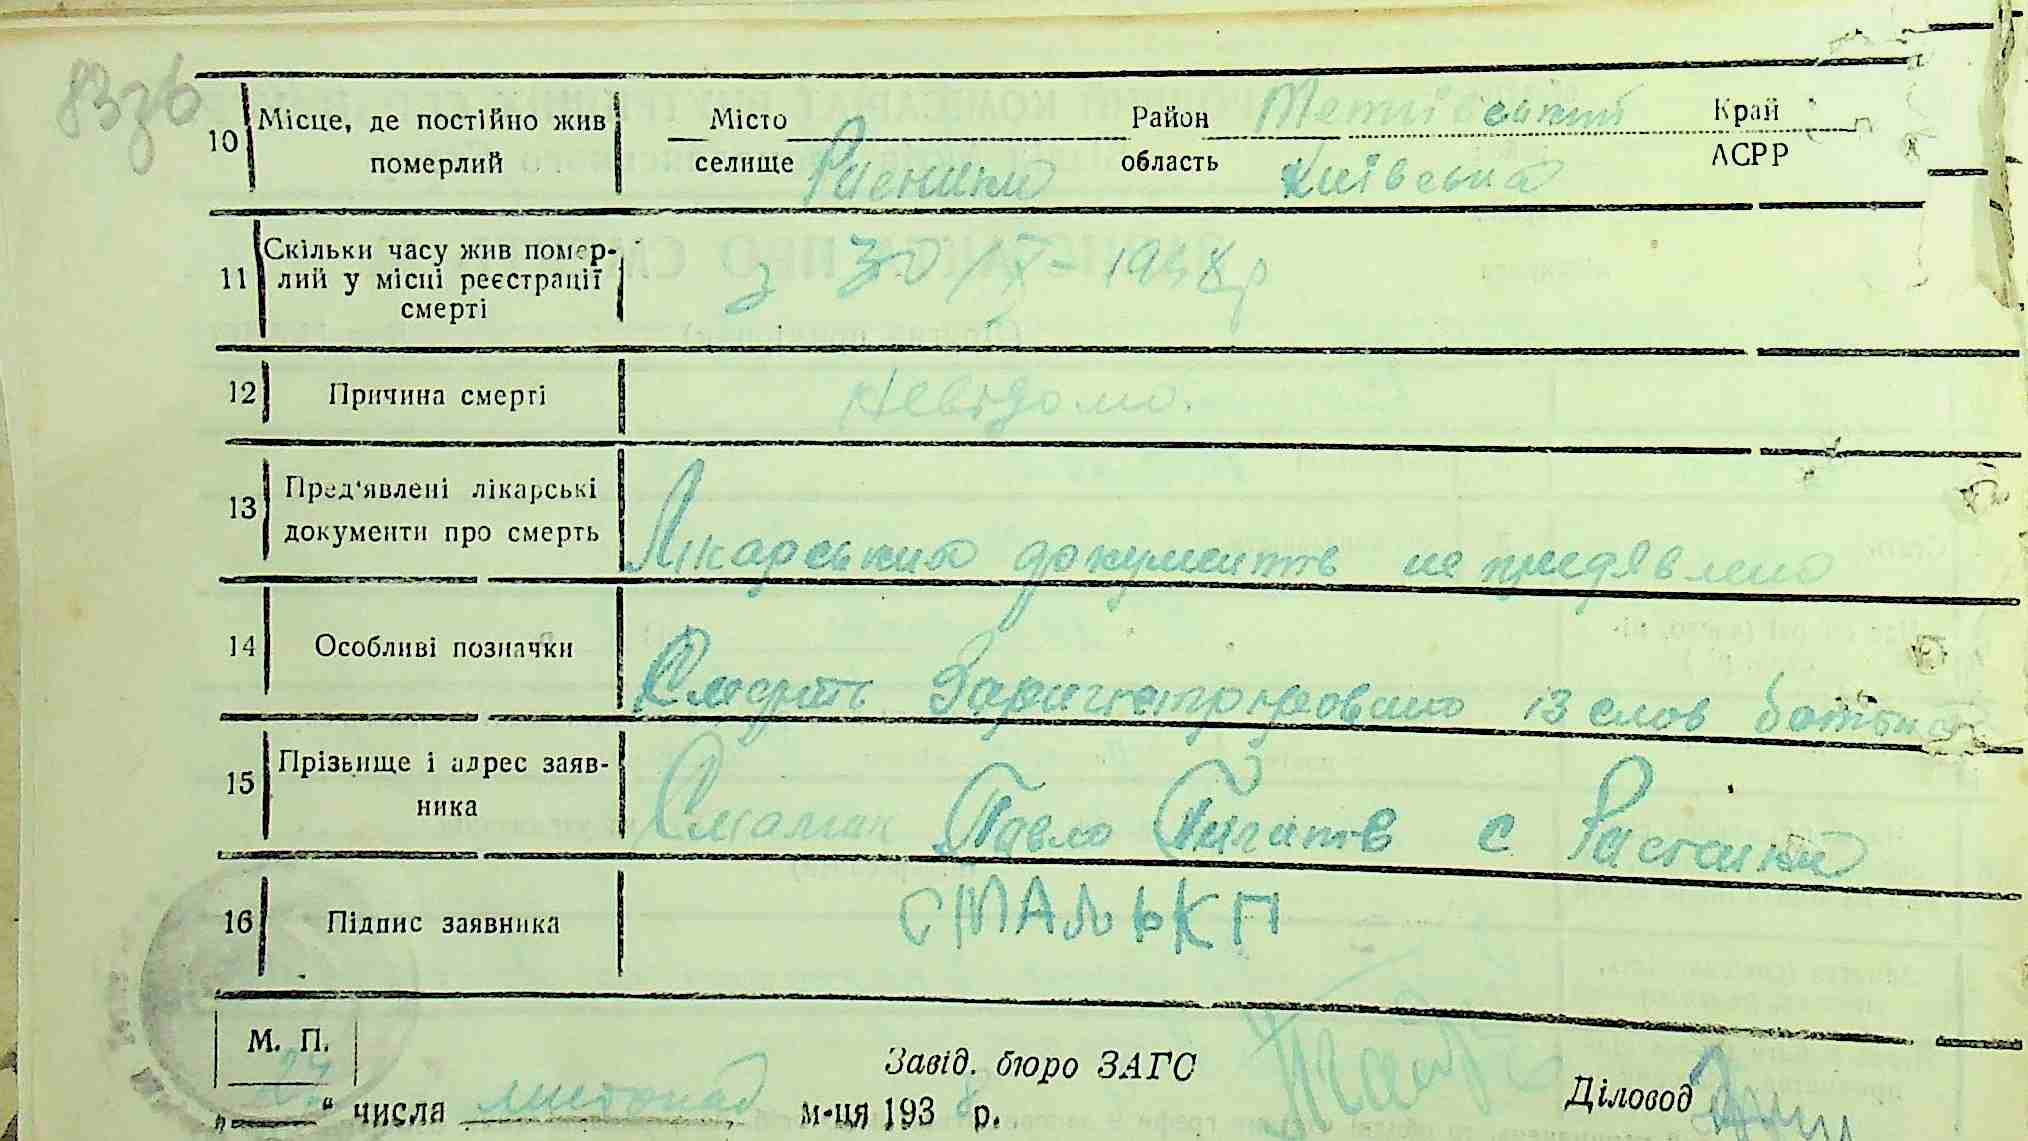 10 Місце, де постійно жив Місто Район Тетіївський Край
померлий селище область Київська АСРР
11 Скільки часу жив помер-
лий у місці реєстрації з 30/X-1938р
смерті
12 Причина смерті Невідомо.
13 Пред'явлені лікарські
документи про смерть Лікарських документів не предявлено
14 Особливі позначки
Смерть Заригистрировано із слов батька
15 Прізьище і адрес заяв-
ника Павло с
16 Підпис заявника СМАЛЬКП
М. П.
Завід. бюро ЗАГС
Діловод
„ “ числа листопад м-ця 1938 р.